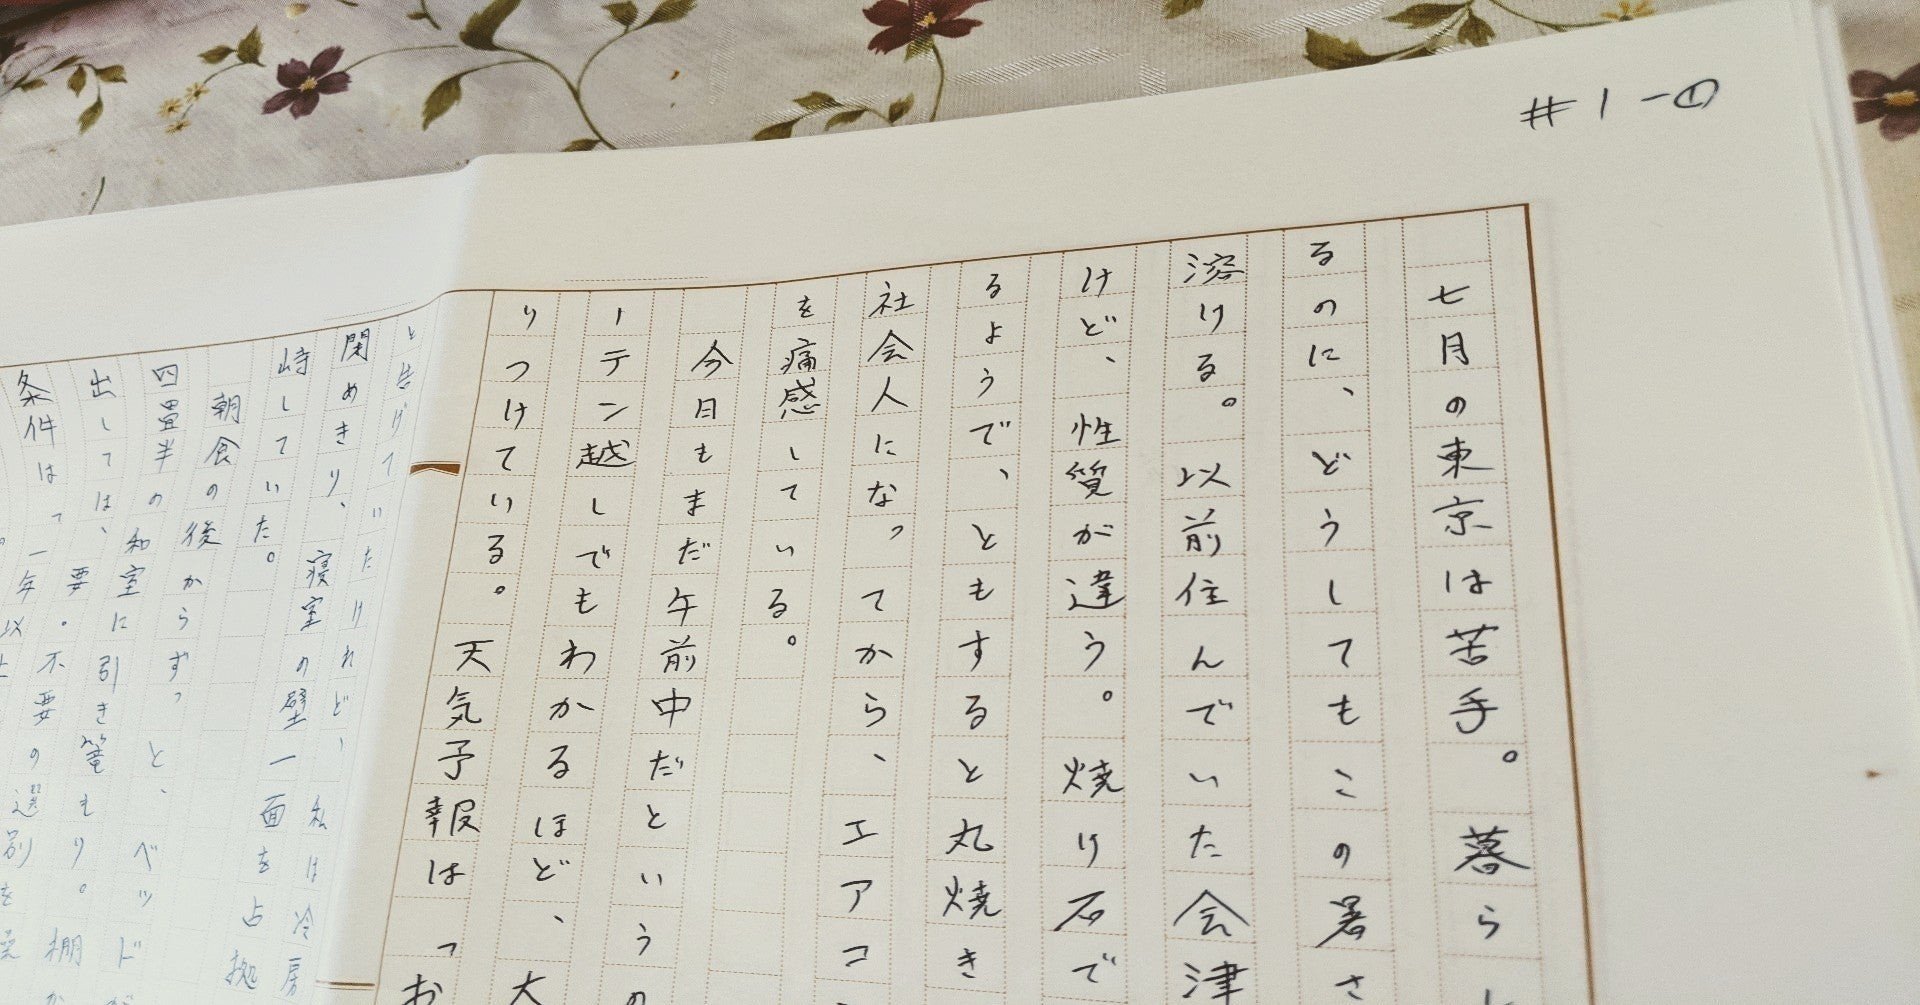 #1-①
七月の東京は苦手。 暮らし
るのに、どうしてもこの暑さ
溶ける。以前住んでいた会津
けど、性質が違う。焼け石で
るようで、ともすると丸焼き
社会人になってから、エアコ
を痛感している。
今日もまだ午前中だというの
ーテン越しでもわかるほど、大
りつけている。天気予報は「お
と告げていたけれど、私は冷房
閉めきり、寝室の壁一面を占拠
峙していた。
朝食の後からずっと、ベッド
四畳半の和室に引き篭もり。棚
出しては、要・不要の選別を
条件は